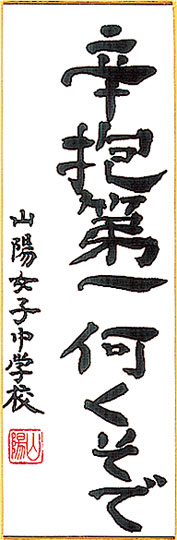 辛抱第一何くそで
山陽女子中学校
山陽